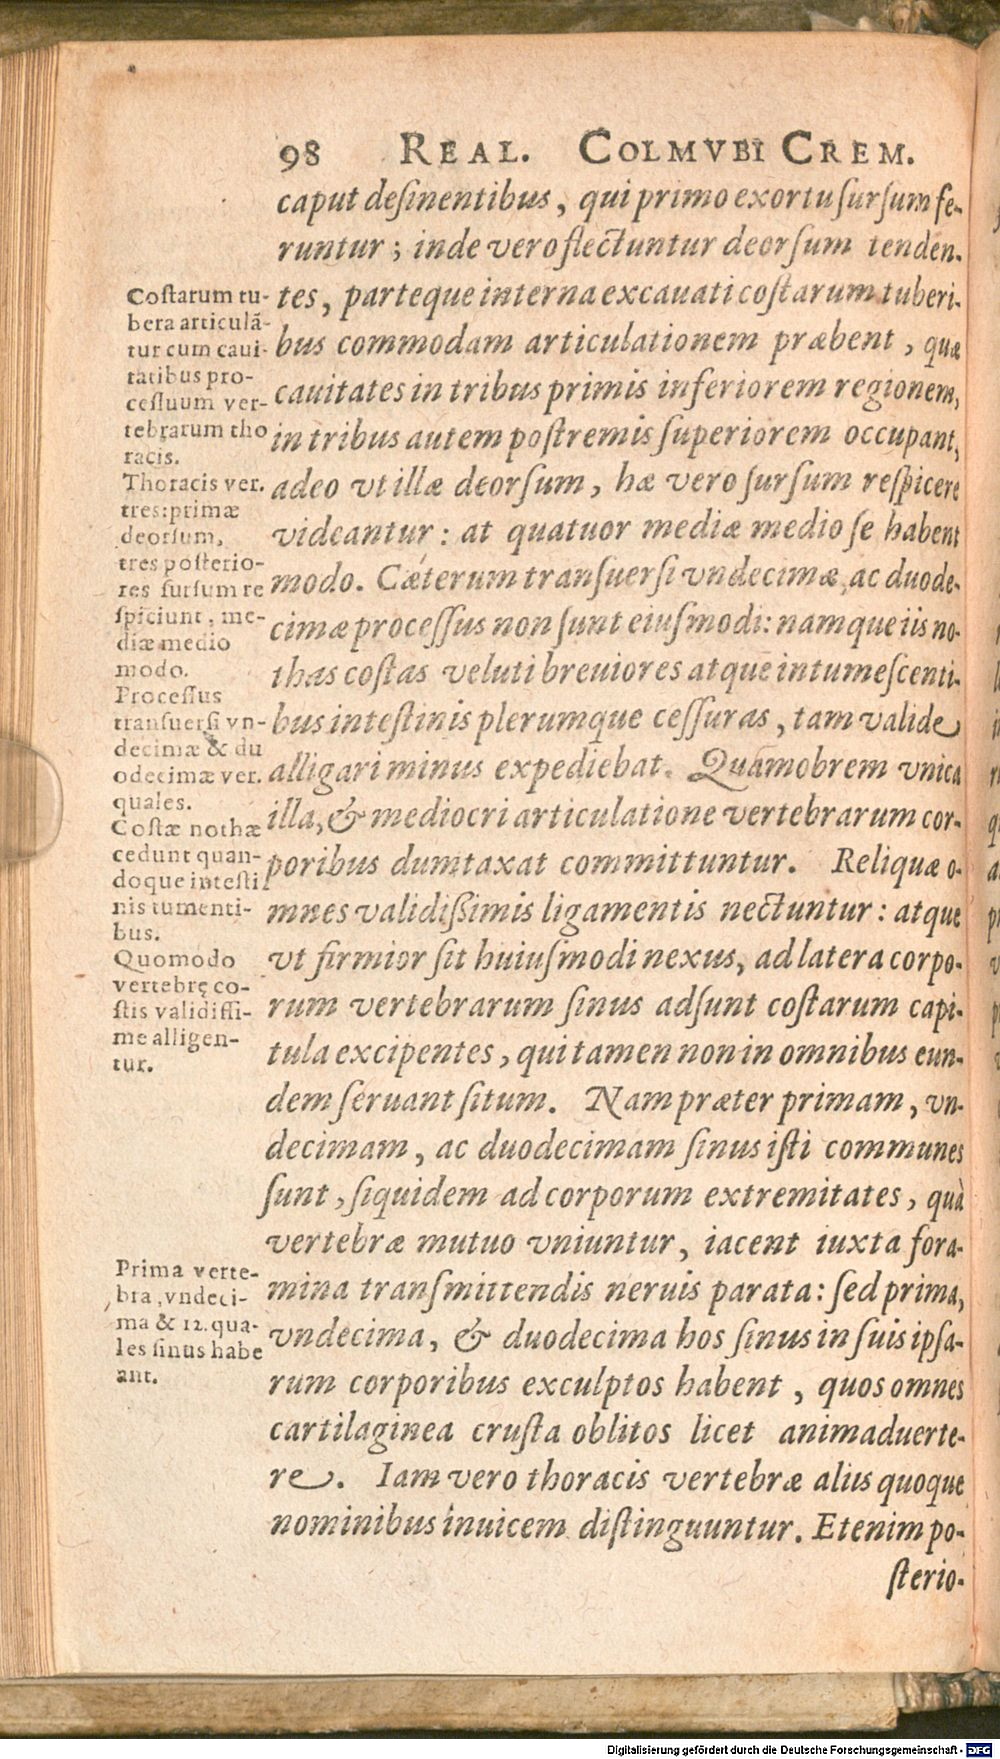 98 REAL. COLMVBI CREM.
caput desinentibus, qui primo exortu sursum fe-
runtur; inde vero flectuntur deorsum tenden-
tes, parteque interna excauati costarum tuberi-
bus commodam articulationem præbent, quæ
cauitates in tribus primis inferiorem regionem,
in tribus autem postremis superiorem occupant,
adeo vt illæ deorsum, hæ vero sursum respicere
videantur: at quatuor mediæ medio se habent
modo. Cæterum transuersi vndecimæ, ac duode-
cimæ processus non sunt eiusmodi: namque iis no-
thas costas veluti breuiores atque intumescenti-
bus intestinis plerumque cessuras, tam valide
alligari minus expediebat. Quamobrem vnica
illa, & mediocri articulatione vertebrarum cor-
poribus dumtaxat committuntur. Reliquæ o-
mnes validissimis ligamentis nectuntur: atque
vt firmior sit huiusmodi nexus, ad latera corpo-
rum vertebrarum sinus adsunt costarum capi-
tula excipentes, qui tamen non in omnibus eun-
dem seruant situm. Nam præter primam, vn-
decimam, ac duodecimam sinus isti communes
sunt, siquidem ad corporum extremitates, quà
vertebræ mutuo vniuntur, iacent iuxta fora-
mina transmittendis neruis parata: sed prima,
vndecima, & duodecima hos sinus in suis ipsa-
rum corporibus exculptos habent, quos omnes
cartilaginea crusta oblitos licet animaduerte-
re. Iam vero thoracis vertebræ aliis quoque
nominibus inuicem distinguuntur. Etenim po-
sterio-
Costarum tu-
bera articulã-
tur cum caui-
tatibus pro-
cessuum ver-
tebrarum tho
racis.
Thoracis ver.
tres: primæ
deorsum,
tres posterio-
res sursum re
spiciunt, me-
diæ medio
modo.
Processus
transuersi vn-
decimæ & du
odecimæ ver.
quales.
Costæ nothæ
cedunt quan-
doque intesti
nis tumenti-
bus.
Quomodo
vertebrę co-
stis validissi-
me alligen-
tur.
Prima verte-
bra, vndeci-
ma & 12. qua-
les sinus habe
ant.
Digitalisierung gefördert durch die Deutsche Forschungsgemeinschaft - DFG